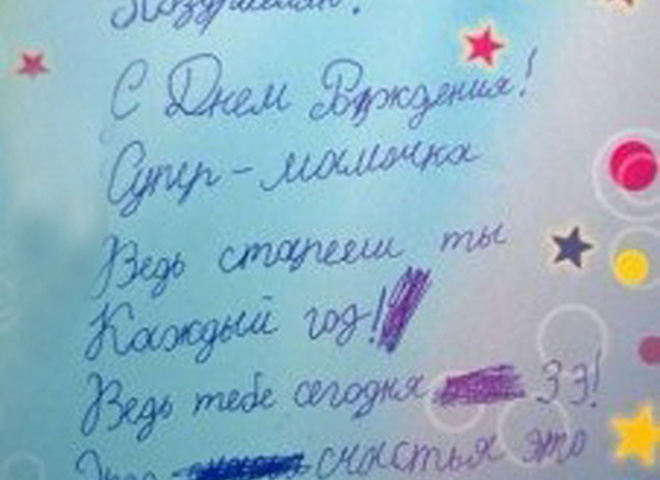 Поздравляю!
С Днем Рождения!
Супер-мамочка
Ведь стареешь ты
Каждый год!
Ведь тебе сегодня 33!
счастья это